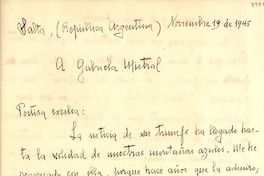 Salta, (República Argentina) Noviembre 19 de 1945
A Gabriela Mistral
Poetisa excelsa:
La noticia de su triunfo ha llegado has-
ta la soledad de nuestras montañas azules. Me he
con ella, porque hace años que la admiro,